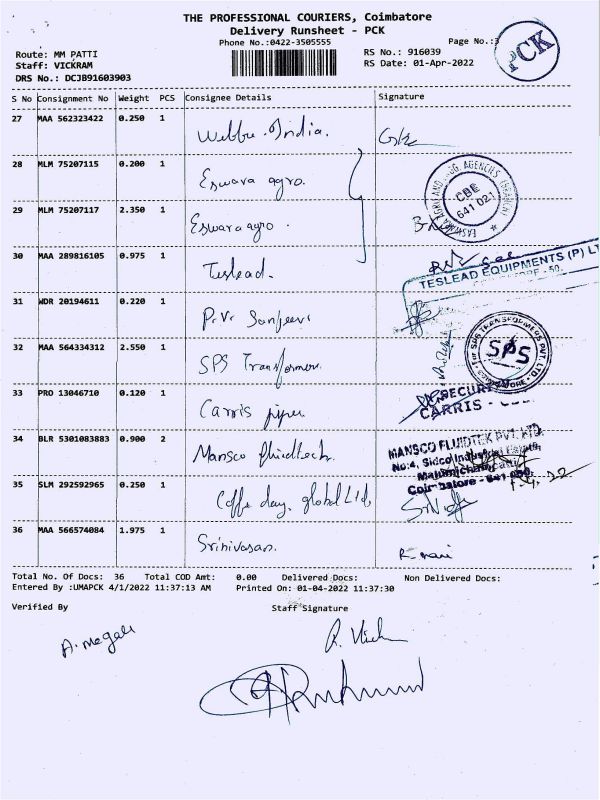 THE PROFESSIONAL COURIERS, Coimbatore
Delivery Runsheet - PCK
Phone No.:0422-3505555
Page No.:3
PCK
Route: MM PATTI
Staff: VICKRAM
DRS No.: DCJB91603903
RS No.: 916039
RS Date: 01-Apr-2022
S No Consignment No Weight PCS Consignee Details Signature
27 MAA 562323422 0.250 1 India.
28 MLM 75207115 0.200 1 Eswara agro.
29 MLM 75207117 2.350 1 Eswara agro.
CBE
641 021
30 MAA 289816105 0.975 1 Teslead.
TESLEAD EQUIPMENTS (P) LT
31 WDR 20194611 0.220 1 P.V. Sanjeevi
32 MAA 564334312 2.550 1 SPS Transformers.
For SPS TRANSFORMERS PVT. LTD.
SPS
33 PRO 13046710 0.120 1 Carris pipes
SECURITY
CARRIS -
34 BLR 5301083883 0.900 2 Mansco fluidtech.
MANSCO FLUIDTEK PVT. LTD.
No:4, Sidco Industrial Estate,
Coimbatore - 641 050.
1.4.22
35 SLM 292592965 0.250 1 Coffe day global Ltd,
36 MAA 566574084 1.975 1 Srinivasan.
R. mani
Total No. Of Docs: 36 Total COD Amt: 0.00 Delivered Docs: Non Delivered Docs:
Entered By :UMAPCK 4/1/2022 11:37:13 AM Printed On: 01-04-2022 11:37:30
Verified By Staff Signature